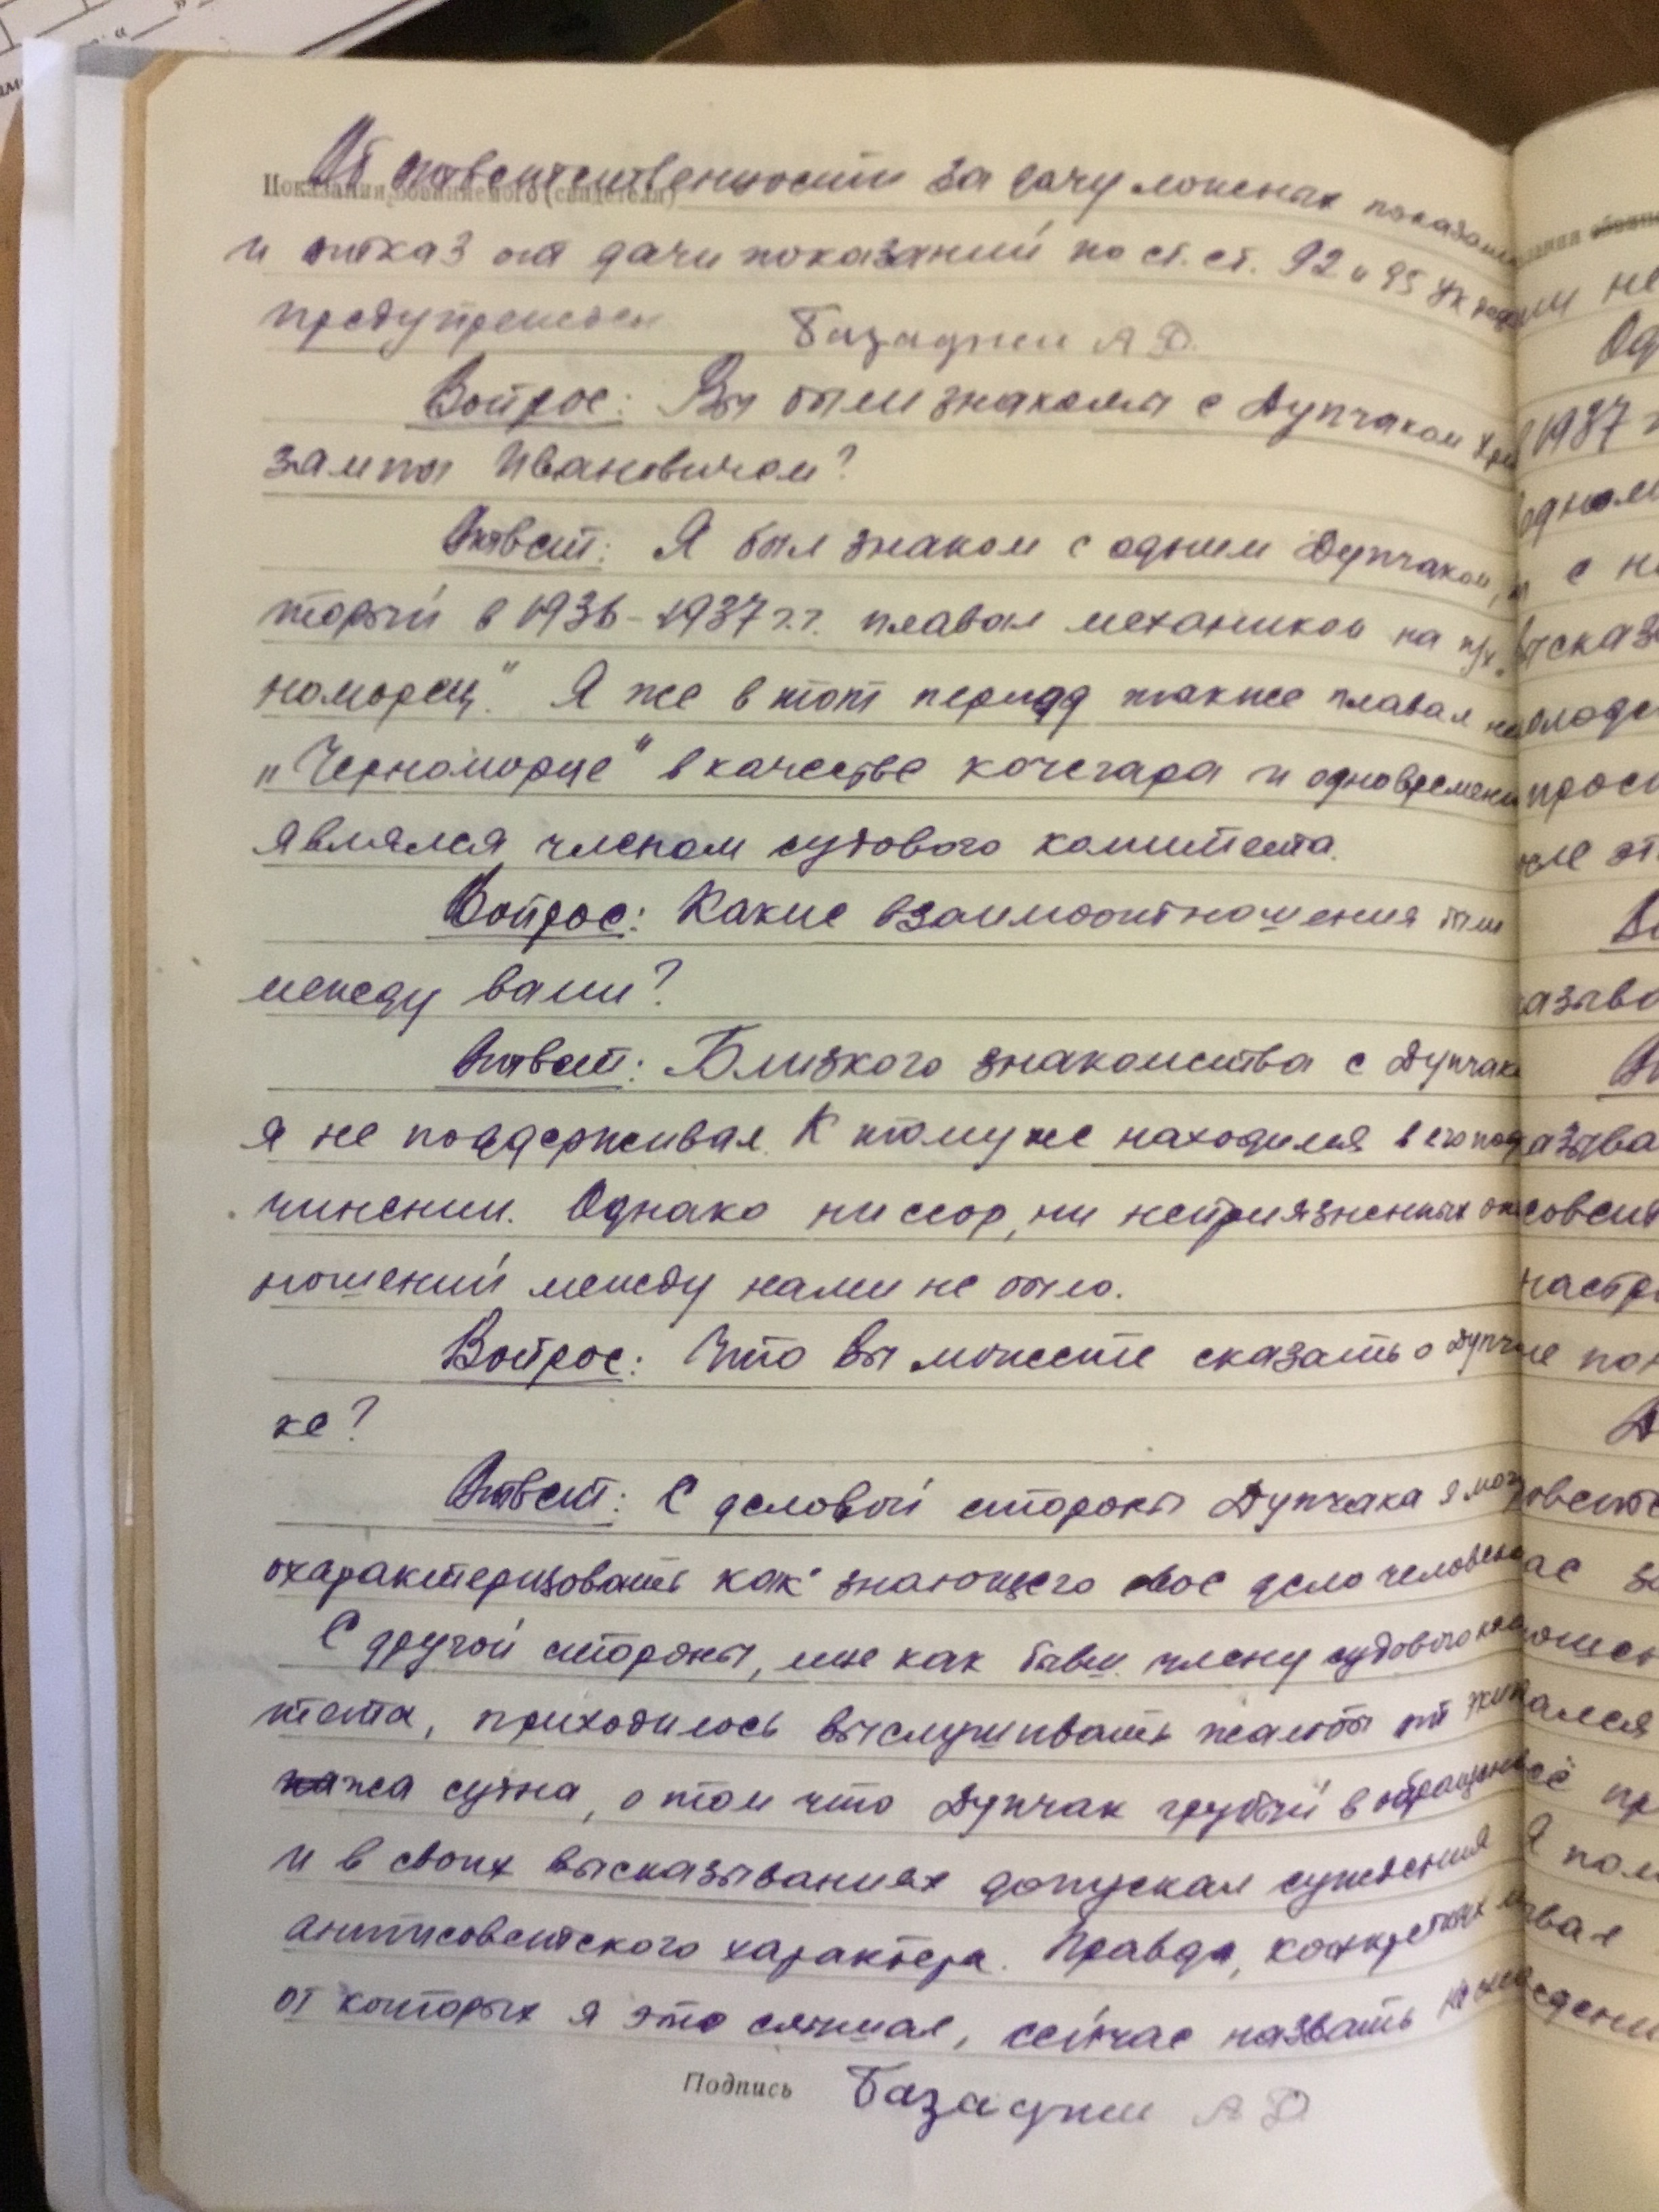 Показания обвиняемого (свидетеля)
Об ответственности за дачу ложных показаний
и отказ от дачи показаний по ст. ст. 92 и 95 УК
предупрежден Базаджи А Д.
Вопрос: Вы были знакомы с Дупчаком
Ивановичом?
Ответ: Я был знаком с одним Дупчаком,
торый в 1936-1937 г.г. плавал механиком на п/х.
номорец." Я же в тот период также плавал на
„Черноморце" в качестве кочегара и одновременно
являлся членом судового комитета.
Вопрос: Какие взаимоотношения были
между вами?
Ответ: Близкого знакомства с Дупчако
я не поддерживал. К тому же находился в его под
чинении. Однако ни ссор, ни неприязненных от
ношений между нами не было.
Вопрос: Что вы можете сказать о Дупча
ке?
Ответ: С деловой стороны Дупчака я могу
охарактеризовать как знающего свое дело человека
С другой стороны, мне как бывш. члену судового ко
тета, приходилось выслушивать жалобы от экип
ажа судна, о том что Дупчак грубый в обращении
и в своих высказываниях допускал суждения
антисоветского характера. Правда, конкретных
от которых я это слышал, сейчас назвать не
Подпись Базаджи А Д
не
Од
1937 г
одном
с н
сказ
прос
сле эт
Во
азыва
азыва
совет
настр
не пон